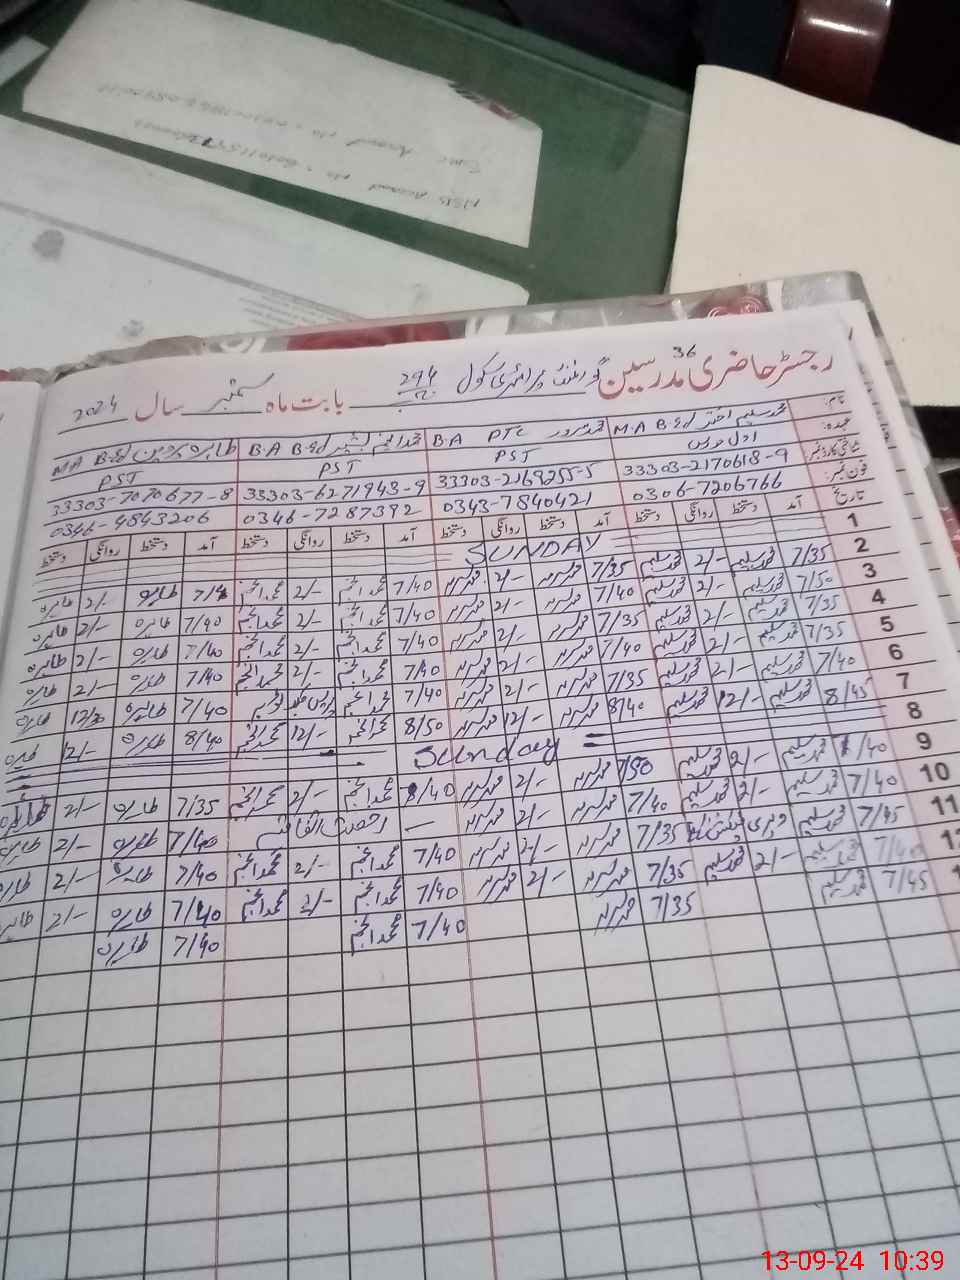 رجسٹر حاضری مدرسین گورنمنٹ پرائمری سکول 294 بابت ماہ ستمبر سال 2024
36
نام: محمد سلیم اختر M.A B.Ed محمد سرور B.A PTC محمد انجم بشیر B.A B.Ed طاہرہ پروین M.A B.Ed
عہدہ: اول مدرس PST PST PST
شناختی کارڈ نمبر: 33303-2170618-9 33303-2169255-5 33303-6271943-9 33303-7070677-8
فون نمبر: 0306-7206766 0343-7840421 0346-7287392 0346-4843206
تاریخ آمد دستخط روانگی دستخط آمد دستخط روانگی دستخط آمد دستخط روانگی دستخط آمد دستخط روانگی دستخط
1 SUNDAY
2 7/35 محمد سلیم 2/- محمد سلیم 7/35 محمد سرور 2/- محمد سرور 7/40 محمد انجم 2/- محمد انجم طاہرہ 2/- طاہرہ
3 7/50 محمد سلیم 2/- محمد سلیم 7/40 محمد سرور 2/- محمد سرور 7/40 محمد انجم 2/- محمد انجم 7/40 طاہرہ 2/- طاہرہ
4 7/35 محمد سلیم 2/- محمد سلیم 7/35 محمد سرور 2/- محمد سرور 7/40 محمد انجم 2/- محمد انجم 7/40 طاہرہ 2/- طاہرہ
5 7/35 محمد سلیم 2/- محمد سلیم 7/40 محمد سرور 2/- محمد سرور 7/40 محمد انجم 2/- محمد انجم 7/40 طاہرہ 2/- طاہرہ
6 7/40 محمد سلیم 2/- محمد سلیم 7/35 محمد سرور 2/- محمد سرور 7/40 محمد انجم 7/40 طاہرہ 12/30 طاہرہ
7 8/45 محمد سلیم 12/- محمد سلیم 8/40 محمد سرور 12/- محمد سرور 8/50 محمد انجم 12/- محمد انجم 8/40 طاہرہ 12/- طاہرہ
8 Sunday
9 محمد سلیم 2/- محمد سلیم 7/50 محمد سرور 2/- محمد سرور محمد انجم 2/- محمد انجم 7/35 طاہرہ 2/-
10 7/40 محمد سلیم 2/- محمد سلیم 7/40 محمد سرور 2/- محمد سرور — رخصت اتفاقیہ 7/40 طاہرہ 2/- طاہرہ
11 7/45 محمد سلیم 7/35 محمد سرور 2/- محمد سرور 7/40 محمد انجم 2/- محمد انجم 7/40 طاہرہ 2/- طاہرہ
محمد سلیم 2/- محمد سلیم 7/35 محمد سرور 2/- محمد سرور 7/40 محمد انجم 2/- محمد انجم 7/40 طاہرہ 2/- طاہرہ
7/45 محمد سلیم 7/35 محمد سرور 7/40 محمد انجم 7/40 طاہرہ
13-09-24 10:39